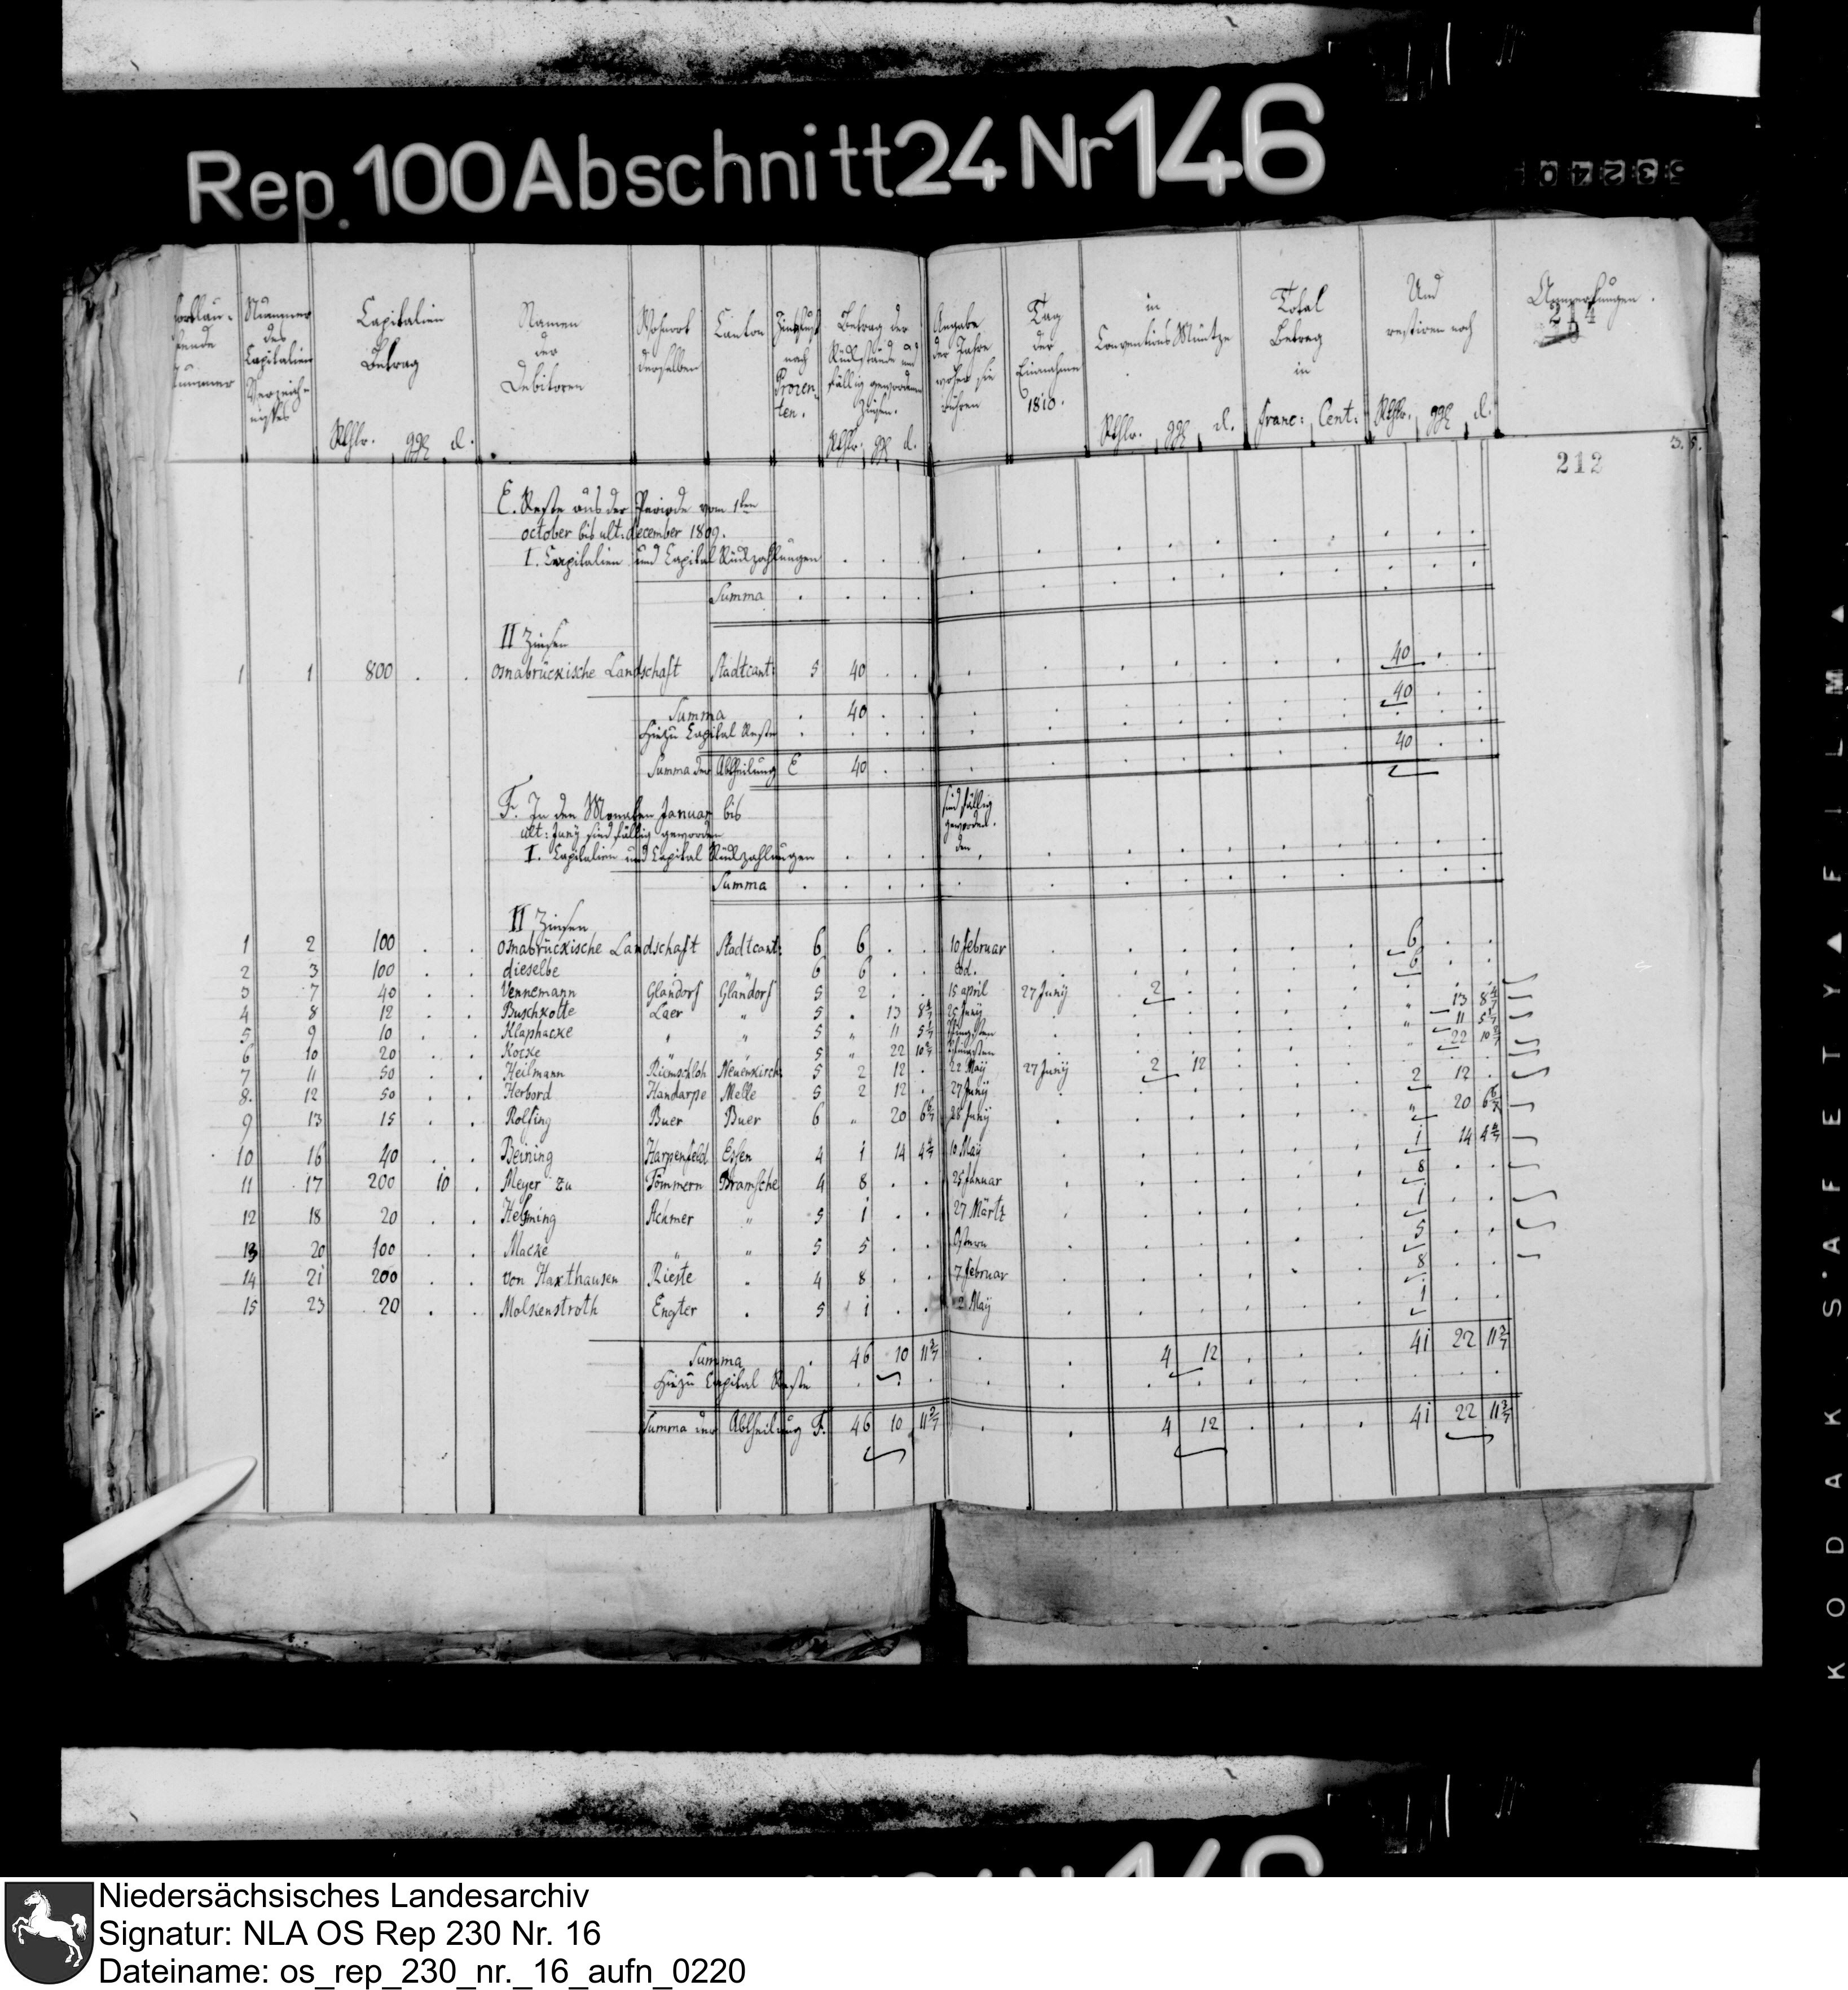 Rep. 100 Abschnitt 24 Nr 146
53240
Fortlau-
fende
Nummer
Nummer
des
Capitalien
Verzeich-
nisses
Capitalien
Betrag
Rthlr. ggl d.
Namen
der
Debitoren
Wohnort
derselben
Canton
Zinsfuß
nach
Prozen-
ten.
Betrag der
Rückstände und
fällig gewordenen
Zinsen.
Rthlr. ggl d.
Angabe
der Jahre
woher sie
rühren
Tag
der
Einnahme
1810.
in
Conventions Müntze
Rthlr. ggl d.
Total
Betrag
in
franc: Cent:
Und
restiren noch
Rthlr. ggl d.
Anmerkungen.
214
212
E. Reste aus der Periode vom 1ten
october bis ult: december 1809.
I. Capitalien und Capital Rückzahlungen
Summa
II Zinsen
1 1 800 Osnabrückische Landschaft Stadtcant: 5 40 40
Summa 40 40
Hiezu Capital Reste
Summa der Abtheilung E 40 40
F. In den Monaten Januar bis sind fällig
ult: Juny sind fällig geworden geworden.
I. Capitalien und Capital Rückzahlungen den
Summa
II Zinsen
1 2 100 Osnabrückische Landschaft Stadtcant: 6 6 10 februar 6
2 3 100 dieselbe 6 6 eod. 6
3 7 40 Vennemann Glandorf Glandorf 5 2 15 april 27 Juny 2
4 8 12 Buschkotte Laer " 5 13 8 4/7 25 Juny " 13 8 4/7
5 9 10 Klaphacke " " 5 " 11 5 1/7 Pfingsten " 11 5 1/7
6 10 20 Kocke " " 5 " 22 10 2/7 Pfingsten " 22 10 2/7
7 11 50 Heilmann Riemschloh Neuenkirch: 5 2 12 22 May 27 Juny 2 12
8. 12 50 Herbord Handarpe Melle 5 2 12 27 Juny 2 12
9 13 15 Rolfing Buer Buer 6 " 20 6 6/7 28 Juny " 20 6 6/7
10 16 40 Beining Harpenfeld Essen 4 1 14 4 4/7 10 May 1 14 4 4/7
11 17 200 10 Meyer zu Tömmern Bramsche 4 8 25 Januar 8
12 18 20 Helming Achmer " 5 1 27 Märtz 1
13 20 100 Macke " " 5 5 Ostern 5
14 21 200 von Haxthausen Rieste 4 8 7 februar 8
15 23 20 Molkenstroth Engter 5 1 2 May 1
Summa 46 10 11 3/7 4 12 41 22 11 3/7
Hiezu Capital Reste
Summa der Abtheilung F. 46 10 11 3/7 4 12 41 22 11 3/7
KODAK SAFETY FILM
Niedersächsisches Landesarchiv
Signatur: NLA OS Rep 230 Nr. 16
Dateiname: os_rep_230_nr._16_aufn_0220